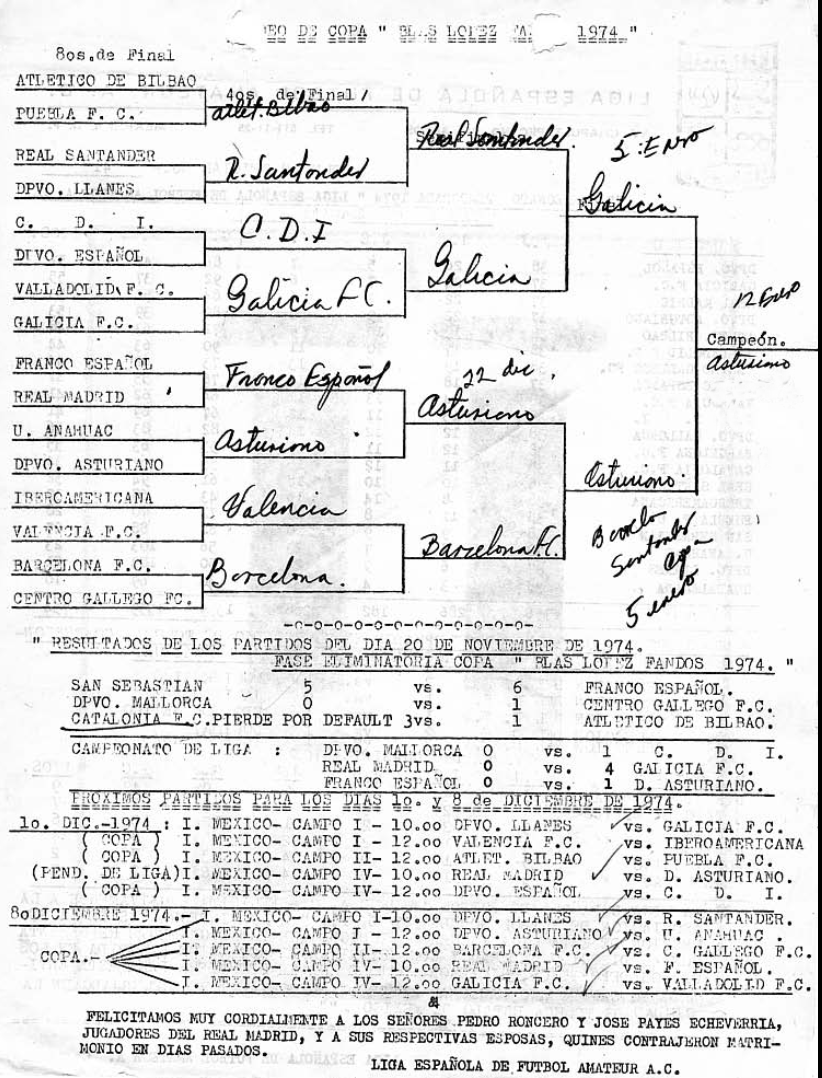 EO DE COPA " BLAS LOPEZ FA 1974 "
8os.de Final
ATLETICO DE BILBAO
PUEBLA F. C.
REAL SANTANDER
DPVO. LLANES
C. D. I.
DIVO. ESPAÑOL
VALLADOLID F. C.
GALICIA F.C.
FRANCO ESPAÑOL
REAL MADRID
U. ANAHUAC
DPVO. ASTURIANO
IBEROAMERICANA
VALENCIA F.C.
BARCELONA F.C.
CENTRO GALLEGO FC.
4os. de Final
atlet. Bilbao
R. Santander
C.D.I
Galicia F.C.
Franco Español
Asturiano
Valencia
Barcelona.
Real Santander
Galicia
22 dic.
Asturiano
Barcelona F.C.
5 Enero
Galicia
Asturiano
12 Enero
Campeón.
Asturiano
Santander
5 enero
-o-o-o-o-o-o-o-o-o-o-o-
" RESULTADOS DE LOS PARTIDOS DEL DIA 20 DE NOVIEMBRE DE 1974.
FASE ELIMINATORIA COPA " BLAS LOPEZ FANDOS 1974. "
SAN SEBASTIAN 5 vs. 6 FRANCO ESPAÑOL.
DPVO. MALLORCA 0 vs. 1 CENTRO GALLEGO F.C.
CATALONIA F.C.PIERDE POR DEFAULT 3vs. 1 ATLETICO DE BILBAO.
CAMPEONATO DE LIGA : DPVO. MALLORCA 0 vs. 1 C. D. I.
REAL MADRID 0 vs. 4 GALICIA F.C.
FRANCO ESPAÑOL 0 vs. 1 D. ASTURIANO.
PROXIMOS PARTIDOS PARA LOS DIAS 1o. y 8 de DICIEMBRE DE 1974.
1o. DIC.-1974 : I. MEXICO- CAMPO I - 10.oo DPVO. LLANES vs. GALICIA F.C.
( COPA ) I. MEXICO- CAMPO I - 12.oo VALENCIA F.C. vs. IBEROAMERICANA
( COPA ) I. MEXICO- CAMPO II- 12.oo ATLET. BILBAO vs. PUEBLA F.C.
(PEND. DE LIGA)I. MEXICO- CAMPO IV- 10.oo REAL MADRID vs. D. ASTURIANO.
( COPA ) I. MEXICO- CAMPO IV- 12.oo DPVO. ESPAÑOL vs. C. D. I.
8oDICIEMBRE 1974.- I. MEXICO- CAMPO I-10.oo DPVO. LLANES vs. R. SANTANDER.
I. MEXICO- CAMPO I - 12.oo DPVO. ASTURIANO vs. U. ANAHUAC .
COPA.- I. MEXICO- CAMPO II- 12.oo BARCELONA F.C. vs. C. GALLEGO F.C.
I. MEXICO- CAMPO IV- 10.oo REAL MADRID vs. F. ESPAÑOL.
I. MEXICO- CAMPO IV- 12.oo GALICIA F.C. vs. VALLADOLID F.C.
FELICITAMOS MUY CORDIALMENTE A LOS SEÑORES PEDRO RONCERO Y JOSE PAYES ECHEVERRIA,
JUGADORES DEL REAL MADRID, Y A SUS RESPECTIVAS ESPOSAS, QUINES CONTRAJERON MATRI-
MONIO EN DIAS PASADOS.
LIGA ESPAÑOLA DE FUTBOL AMATEUR A.C.